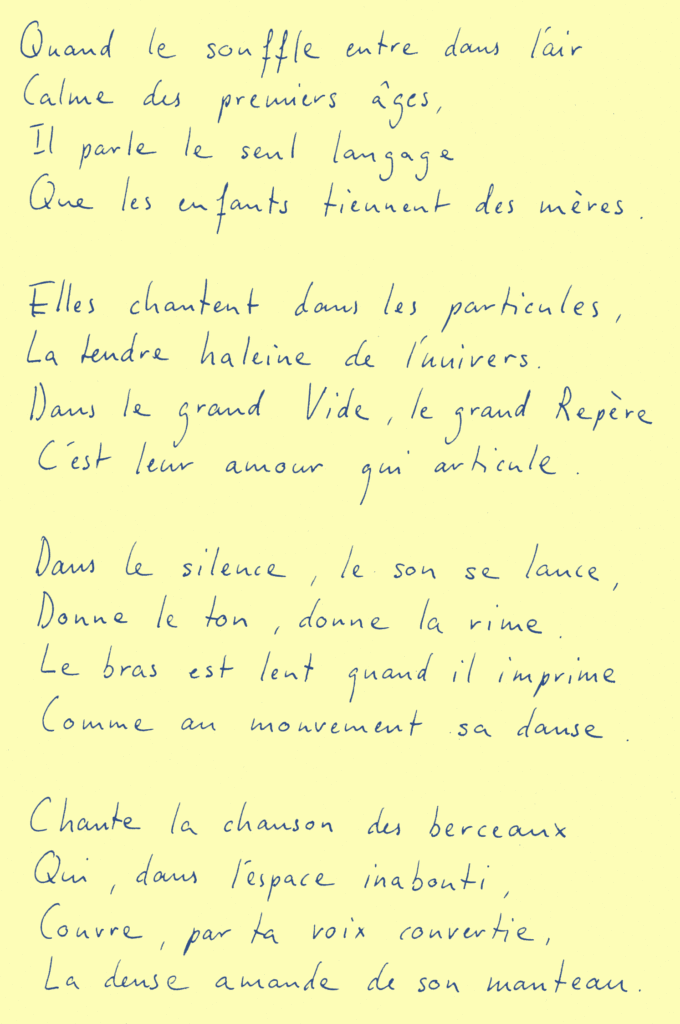 Quand le souffle entre dans l'air
Calme des premiers âges,
Il parle le seul langage
Que les enfants tiennent des mères.
Elles chantent dans les particules,
La tendre haleine de l'univers.
Dans le grand Vide, le grand Repère
C'est leur amour qui articule.
Dans le silence, le son se lance,
Donne le ton, donne la rime.
Le bras est lent quand il imprime
Comme au mouvement sa danse.
Chante la chanson des berceaux
Qui, dans l'espace inabouti,
Couvre, par ta voix convertie,
La dense amande de son manteau.